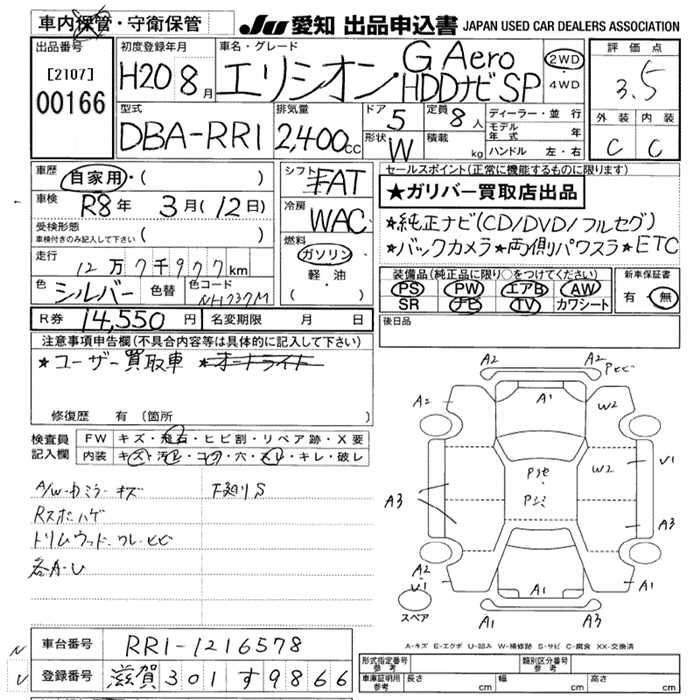 車内保管・守衛保管
JU 愛知 出品申込書 JAPAN USED CAR DEALERS ASSOCIATION
出品番号 [2107] 00166
初度登録年月 H20 8月
車名・グレード エリシオン G Aero HDDナビSP
2WD・4WD
評価点 3.5
外装 C 内装 C
型式 DBA-RR1
排気量 2,400cc
ドア 5 形状 W
定員 8人 積載 kg
ディーラー・並行
モデル年式 年
ハンドル 左・右
車歴 自家用・( )
車検 R8年 3月(12日)
受検形態 車検付きのみ記入して下さい ( )
走行 12万7千977km
色 シルバー 色替 色コード NH737M
シフト FAT
冷房 WAC
燃料 ガソリン 軽油 ( )
セールスポイント(正常に機能するものに限ります)
★ガリバー買取店出品
★純正ナビ(CD/DVD/フルセグ)
★バックカメラ★両側パワスラ★ETC
装備品(純正品に限り○をつけてください)
PS PW エアB AW
SR ナビ TV カワシート
新車保証書 有・無
R券 14,550円 名変期限 月 日
後日品
注意事項申告欄(不具合内容等は具体的に記入して下さい)
★ユーザー買取車 ★オートライト
修復歴 有(箇所
検査員記入欄
FW キズ・飛石・ヒビ割・リペア跡・X要
内装 キズ・汚レ・コゲ・穴・スレ・キレ・破レ
A/W・ドミラーキズ 下廻りS
Rスポハゲ
トリムウッド・ワレ・ヒビ
各A・U
A2 A2
A2 A1 W2
W2 V1
A3 A3
A2 V1 A1 A2
A1 A3
スペア
A-キズ E-エクボ U-凹み W-補修跡 S-サビ C-腐食 XX-交換済
車台番号 RR1-1216578
登録番号 滋賀 301 す 9866
形式指定番号 参考 類別区分番号 参考
車庫証明用 参考 長さ cm 幅 cm 高さ cm